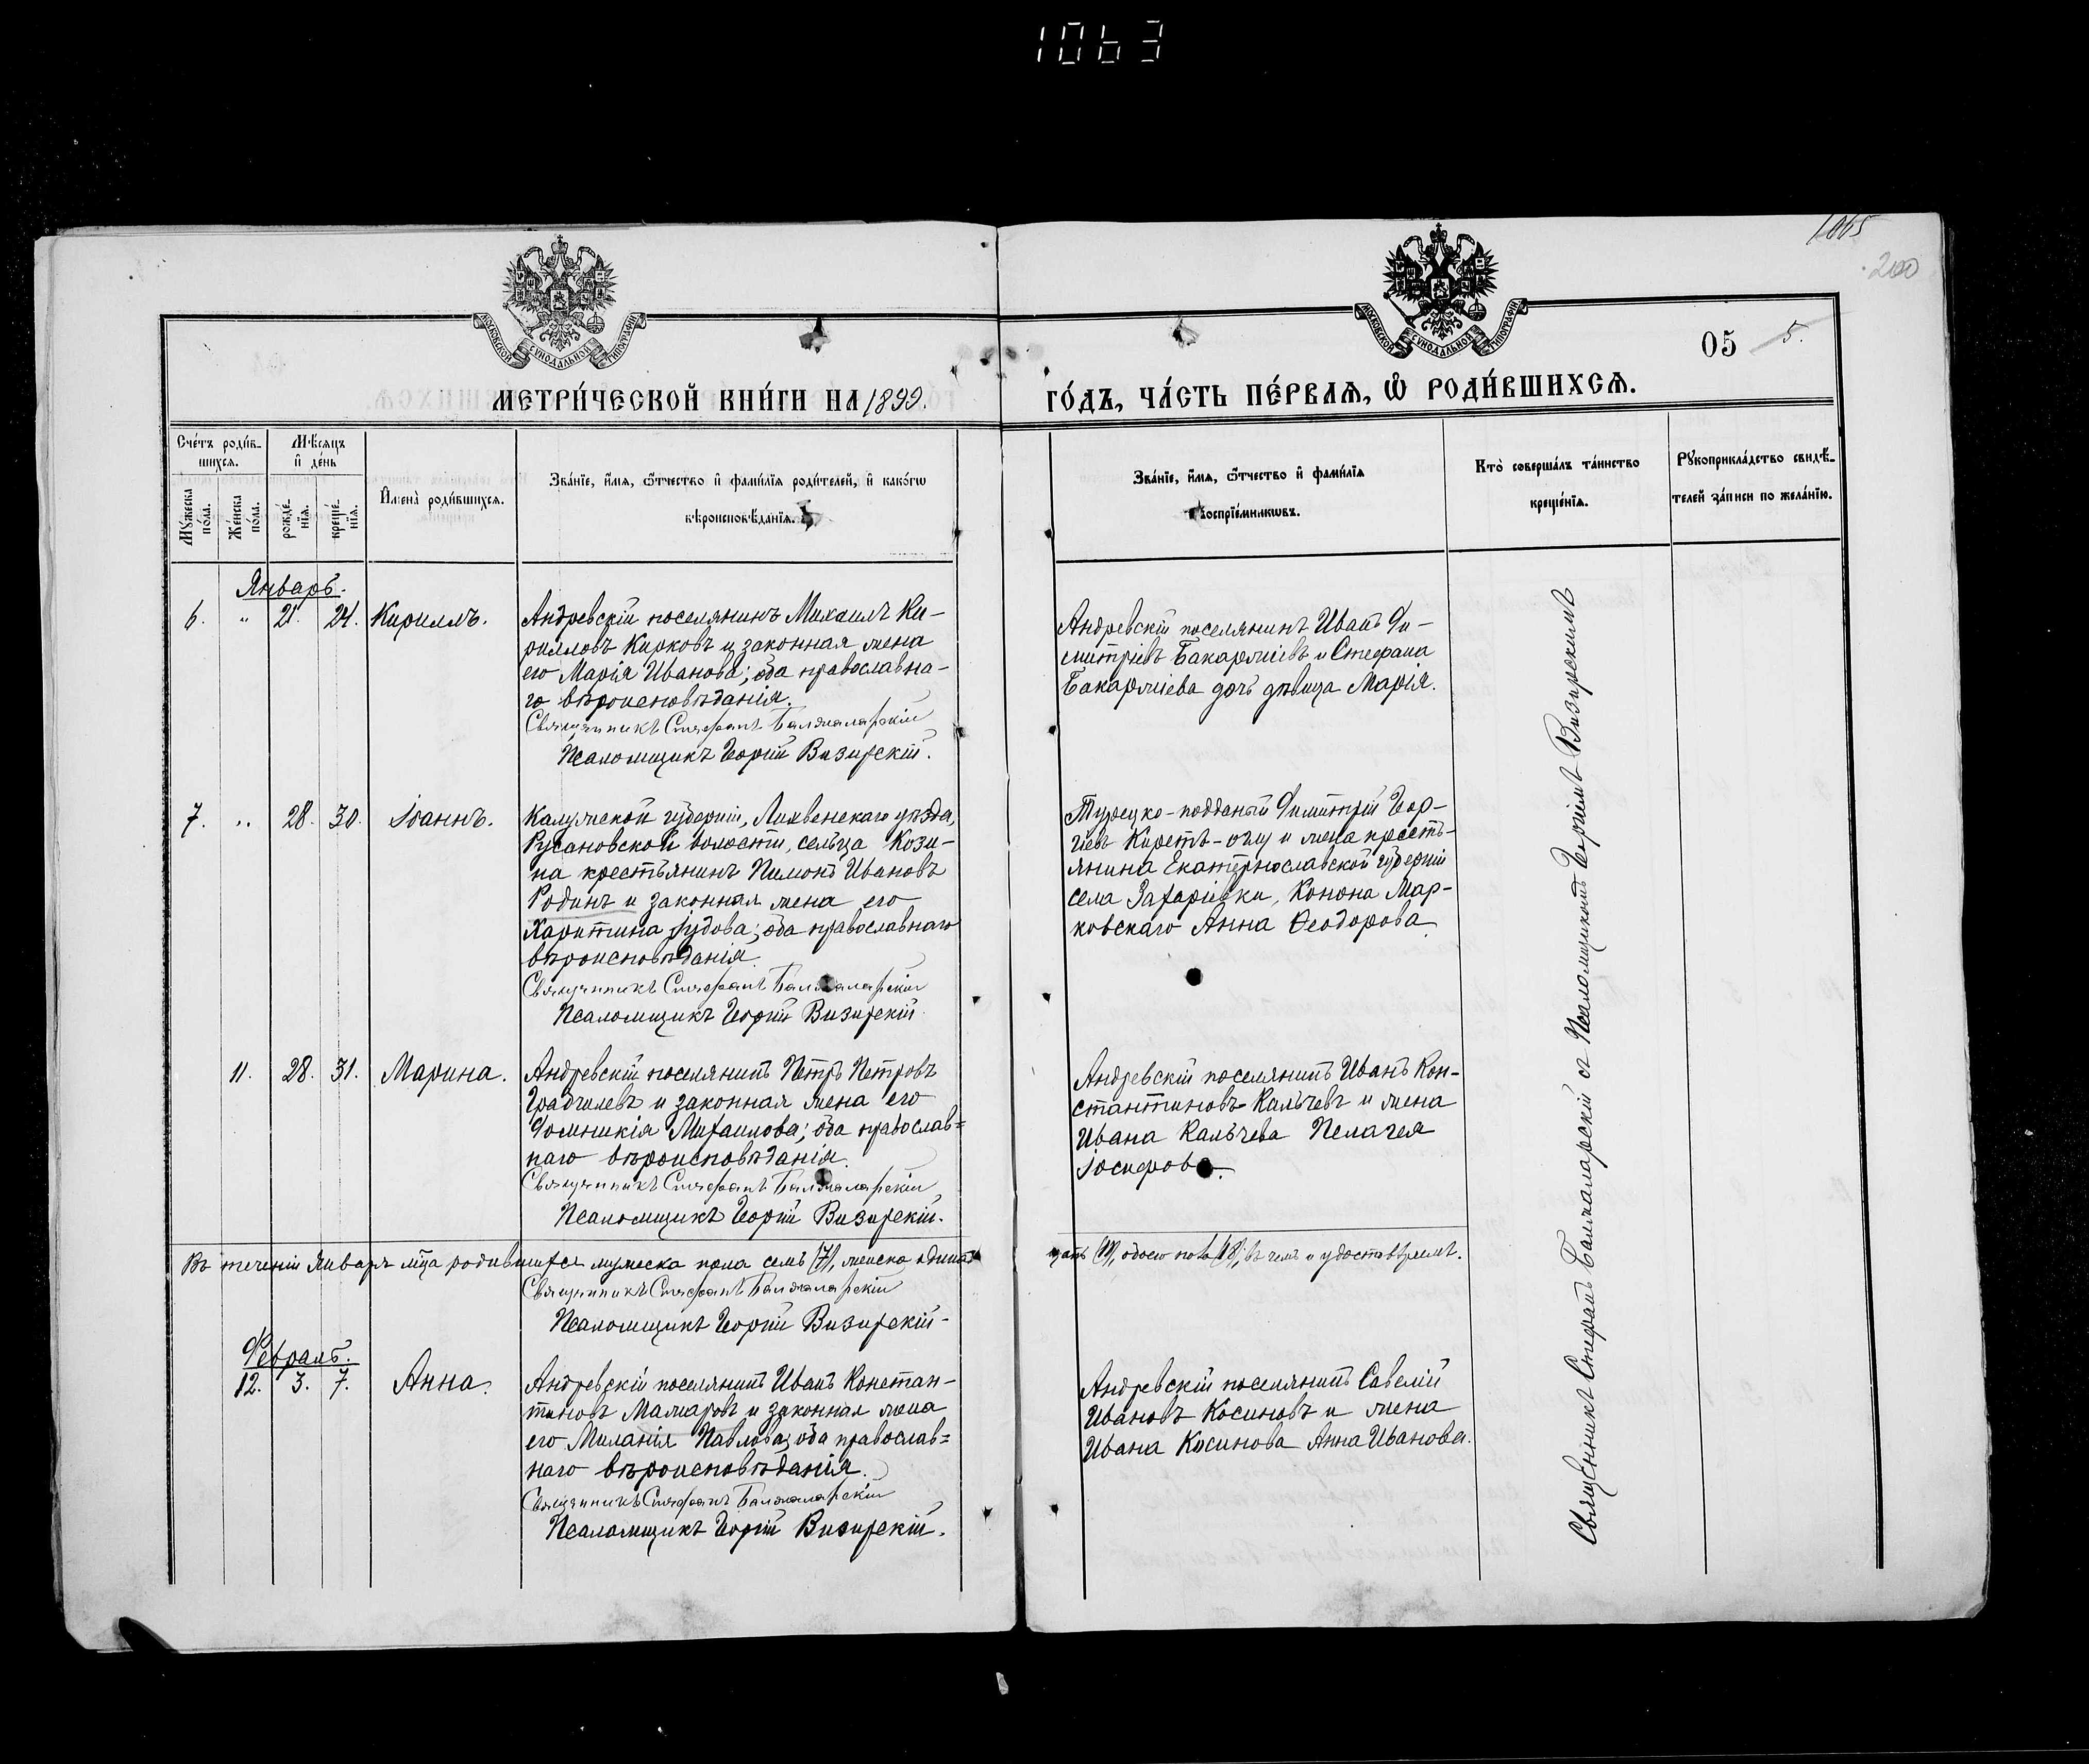 1063
1065
200
05 5.
МЕТРИ́ЧЕСКОЙ КНИ́ГИ НА 1899.
ГО́ДЪ, ЧА́СТЬ ПЕ́РВАѦ, Ѡ҆ РОДИ́ВШИХСѦ.
МОСКОВСКОЙ СѴНОДАЛЬНОЙ ТИПОГРАФІИ
МОСКОВСКОЙ СѴНОДАЛЬНОЙ ТИПОГРАФІИ
Счётъ роди́в-
шихсѧ.
Мꙋ́жеска по́ла.
Же́нска по́ла.
Мѣ́сѧцъ
и҆ де́нь
рожде́-
нїѧ.
креще́-
нїѧ.
И҆мена̀ роди́вшихсѧ.
Зва́нїе, и҆́мѧ, ѻ҆́тчество и҆ фами́лїѧ роди́телей, и҆ како́гѡ
вѣроисповѣ́данїѧ.
Зва́нїе, и҆́мѧ, ѻ҆́тчество и҆ фами́лїѧ
воспрїе́мникѡвъ.
Кто̀ соверша́лъ та́инство
креще́нїѧ.
Рꙋкоприкла́дство свидѣ́-
телей за́писи по жела́нїю.
Январь.
6. " 21. 24. Кириллъ.
Андревскій поселянинъ Михаилъ Ки-
рилловъ Кирковъ и законная жена
его Марія Иванова; оба православна-
го вѣроисповѣданія.
Священникъ Стефанъ Балжаларскій
Псаломщикъ Георгій Визирскій.
Андревскій поселянинъ Иванъ Ди-
митріевъ Бакаржіевъ и Стефана
Бакаржіева дочь дѣвица Марія.
7. " 28. 30. Іоаннъ.
Калужской губерніи, Лихвенскаго уѣзда,
Русановской волости, сельца Кози-
на крестьянинъ Пимонъ Ивановъ
Родинъ и законная жена его
Харитина Іудова; оба православнаго
вѣроисповѣданія.
Священникъ Стефанъ Балжаларскій
Псаломщикъ Георгій Визирскій
Турецко-подданый Димитрій Геор-
гіевъ Киретъ-оглу и жена кресть-
янина Екатеринославской губерніи
села Захаріевки, Конона Мар-
ковскаго Анна Ѳеодорова.
11. 28. 31. Марина.
Андревскій поселянинъ Петръ Петровъ
Градчилевъ и законная жена его
Домникія Михаилова; оба православ=
наго вѣроисповѣданія.
Священникъ Стефанъ Балжаларскій
Псаломщикъ Георгій Визирскій.
Андревскій поселянинъ Иванъ Кон-
стантиновъ Кальчевъ и жена
Ивана Кальчева Пелагея
Іосифова.
Въ теченіи Января мѣца родившихся мужеска пола семь (7), женска одинад-
цать (11), обоего пола (18), въ чемъ и удостовѣряемъ.
Священникъ Стефанъ Балжаларскій
Псаломщикъ Георгій Визирскій-
Февраль.
12. 3. 7. Анна.
Андревскій поселянинъ Иванъ Констан-
тиновъ Малжаровъ и законная жена
его Миланія Павлова; оба православ=
наго вѣроисповѣданія.
Священникъ Стефанъ Балжаларскій
Псаломщикъ Георгій Визирскій.
Андревскій поселянинъ Савелій
Ивановъ Косиновъ и жена
Ивана Косинова Анна Иванова.
Священникъ Стефанъ Балжаларскій съ Псаломщикомъ Георгіемъ Визирскимъ